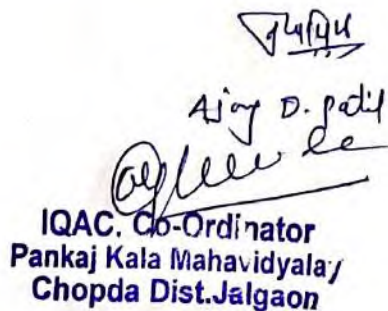 Ajay D. Patil
IQAC. Co-Ordinator
Pankaj Kala Mahavidyalay
Chopda Dist.Jalgaon